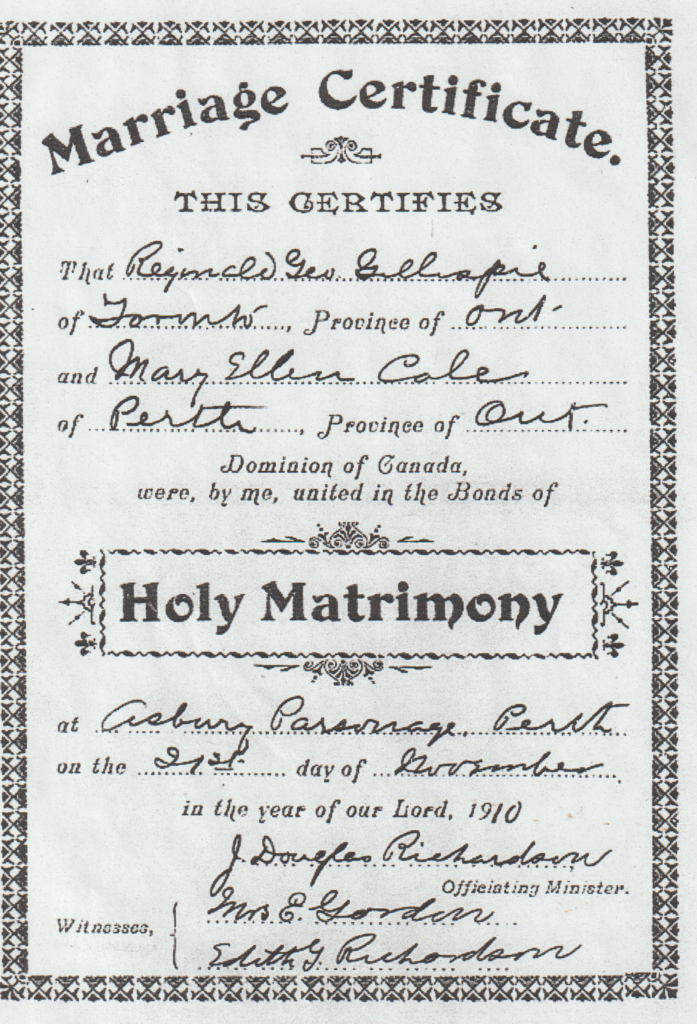 Marriage Certificate.
THIS CERTIFIES
That Reginald Geo. Gillespie
of Toronto, Province of Ont.
and Mary Ellen Cole
of Perth, Province of Ont.
Dominion of Canada,
were, by me, united in the Bonds of
Holy Matrimony
at Asbury Parsonage, Perth
on the 21st day of November
in the year of our Lord, 1910
J. Douglas Richardson
Officiating Minister.
Witnesses, Mrs E. Gordon
Edith G. Richardson